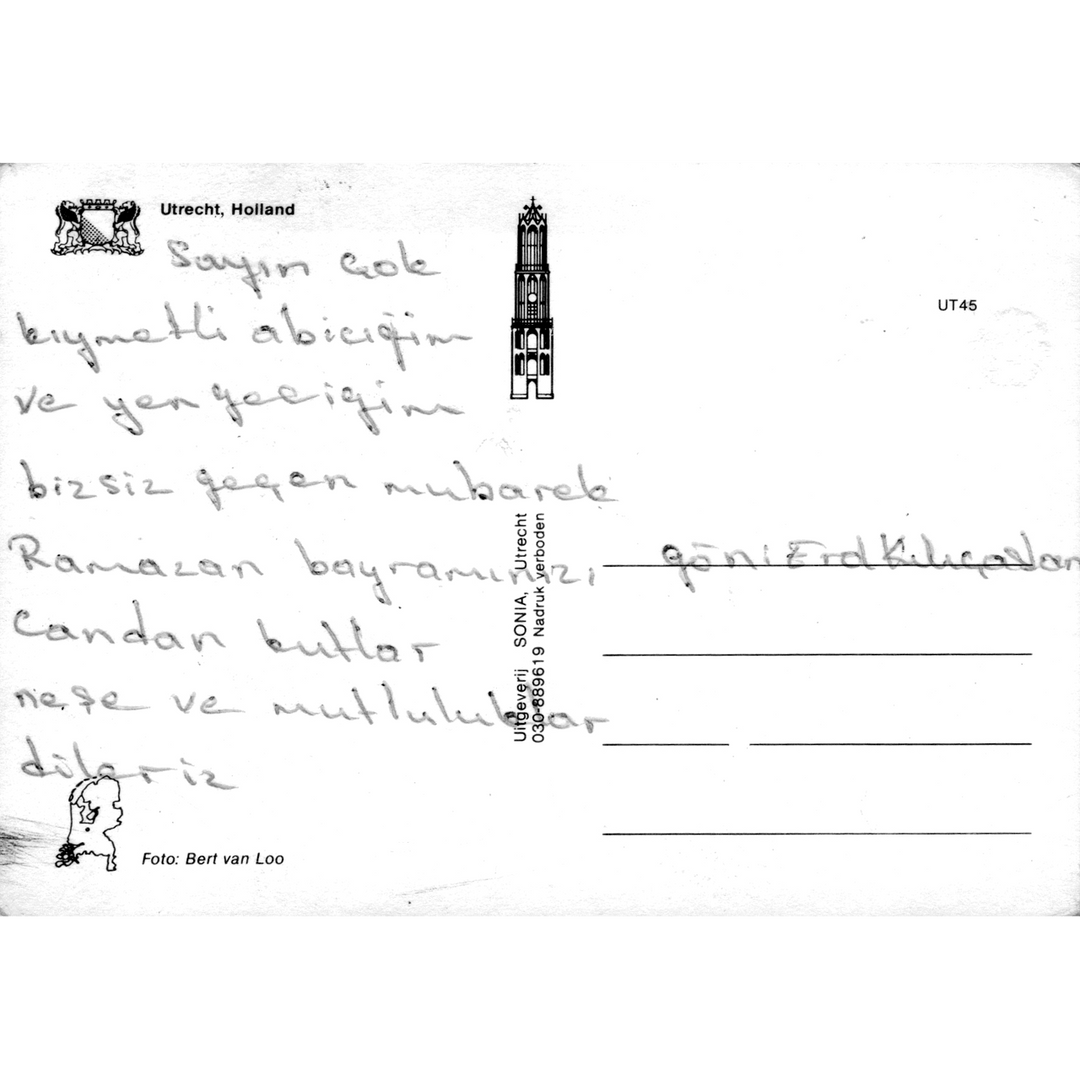 Utrecht, Holland
Sayın çok
kıymetli abiciğim
ve yengeciğim
bizsiz geçen mubarek
Ramazan bayramınızı
Candan kutlar
neşe ve mutluluklar
dileriz
Foto: Bert van Loo
Uitgeverij SONIA, Utrecht
030-889619 Nadruk verboden
UT45
göni Erd Kılıçaslan